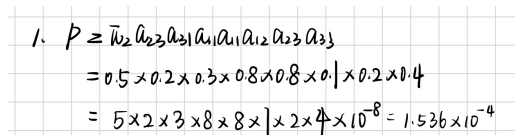 1. P = π₂a₂₃a₃₁a₁₁a₁₁a₁₂a₂₃a₃₃
= 0.5×0.2×0.3×0.8×0.8×0.1×0.2×0.4
= 5×2×3×8×8×1×2×4×10⁻⁸ = 1.536×10⁻⁴